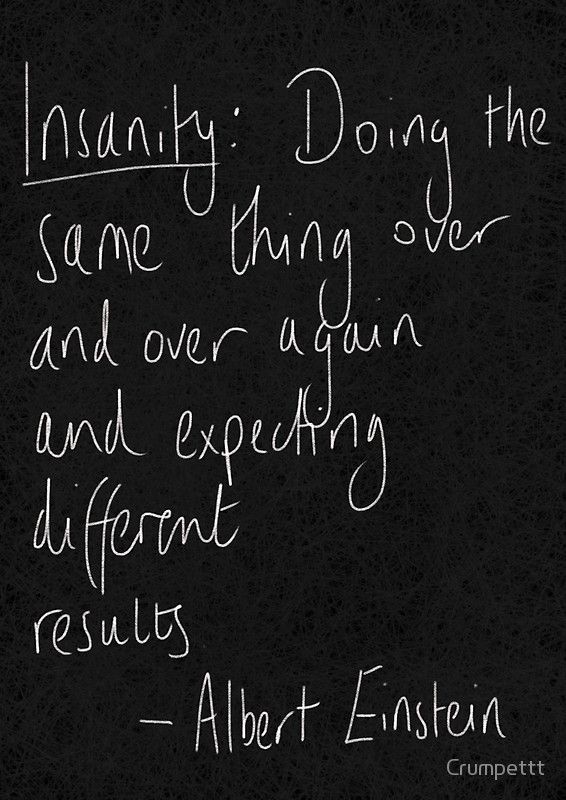 Insanity: Doing the
same thing over
and over again
and expecting
different
results
- Albert Einstein
Crumpettt